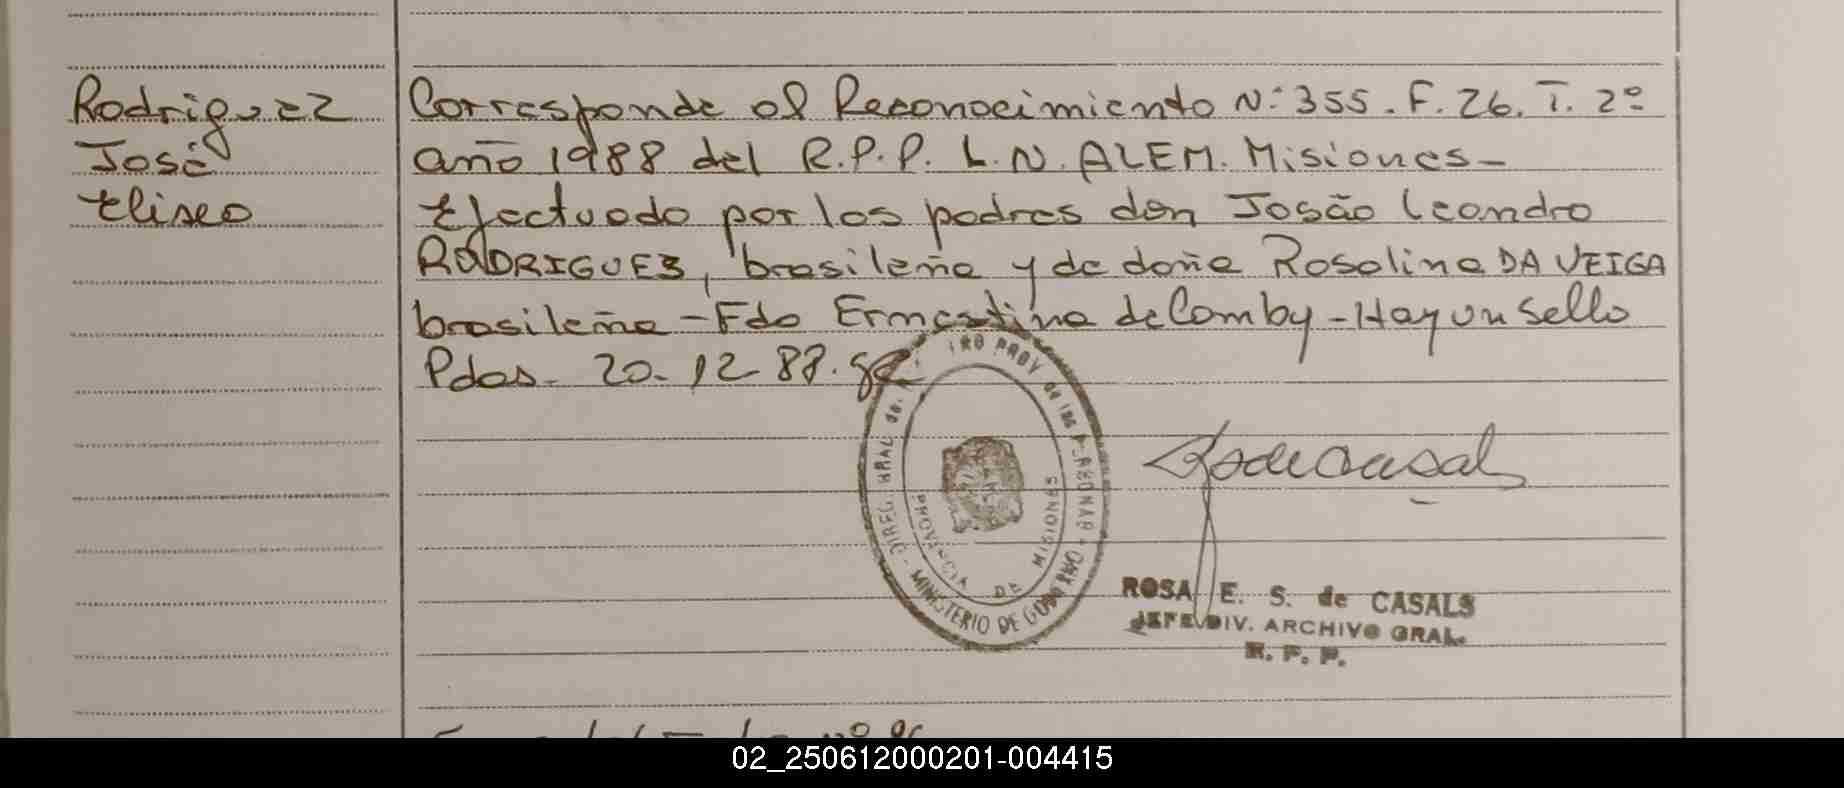 Rodriguez
José
Eliseo
Corresponde al Reconocimiento N: 355. F. 26. T. 2º
año 1988 del R.P.P. L.N. ALEM. Misiones-
Efectuado por los padres don Josão Leandro
RODRIGUES, brasileña y de doña Rosalina DA VEIGA
brasileña - Fdo Ernestina de Comby - Hay un sello
Pdas- 20-12-88.
DIREC. GRAL de. PROV de las PERSONAS
MINISTERIO DE
PROVINCIA DE MISIONES
ROSA E. S. de CASALS
JEFE DIV. ARCHIVO GRAL.
R. P. P.
02_250612000201-004415